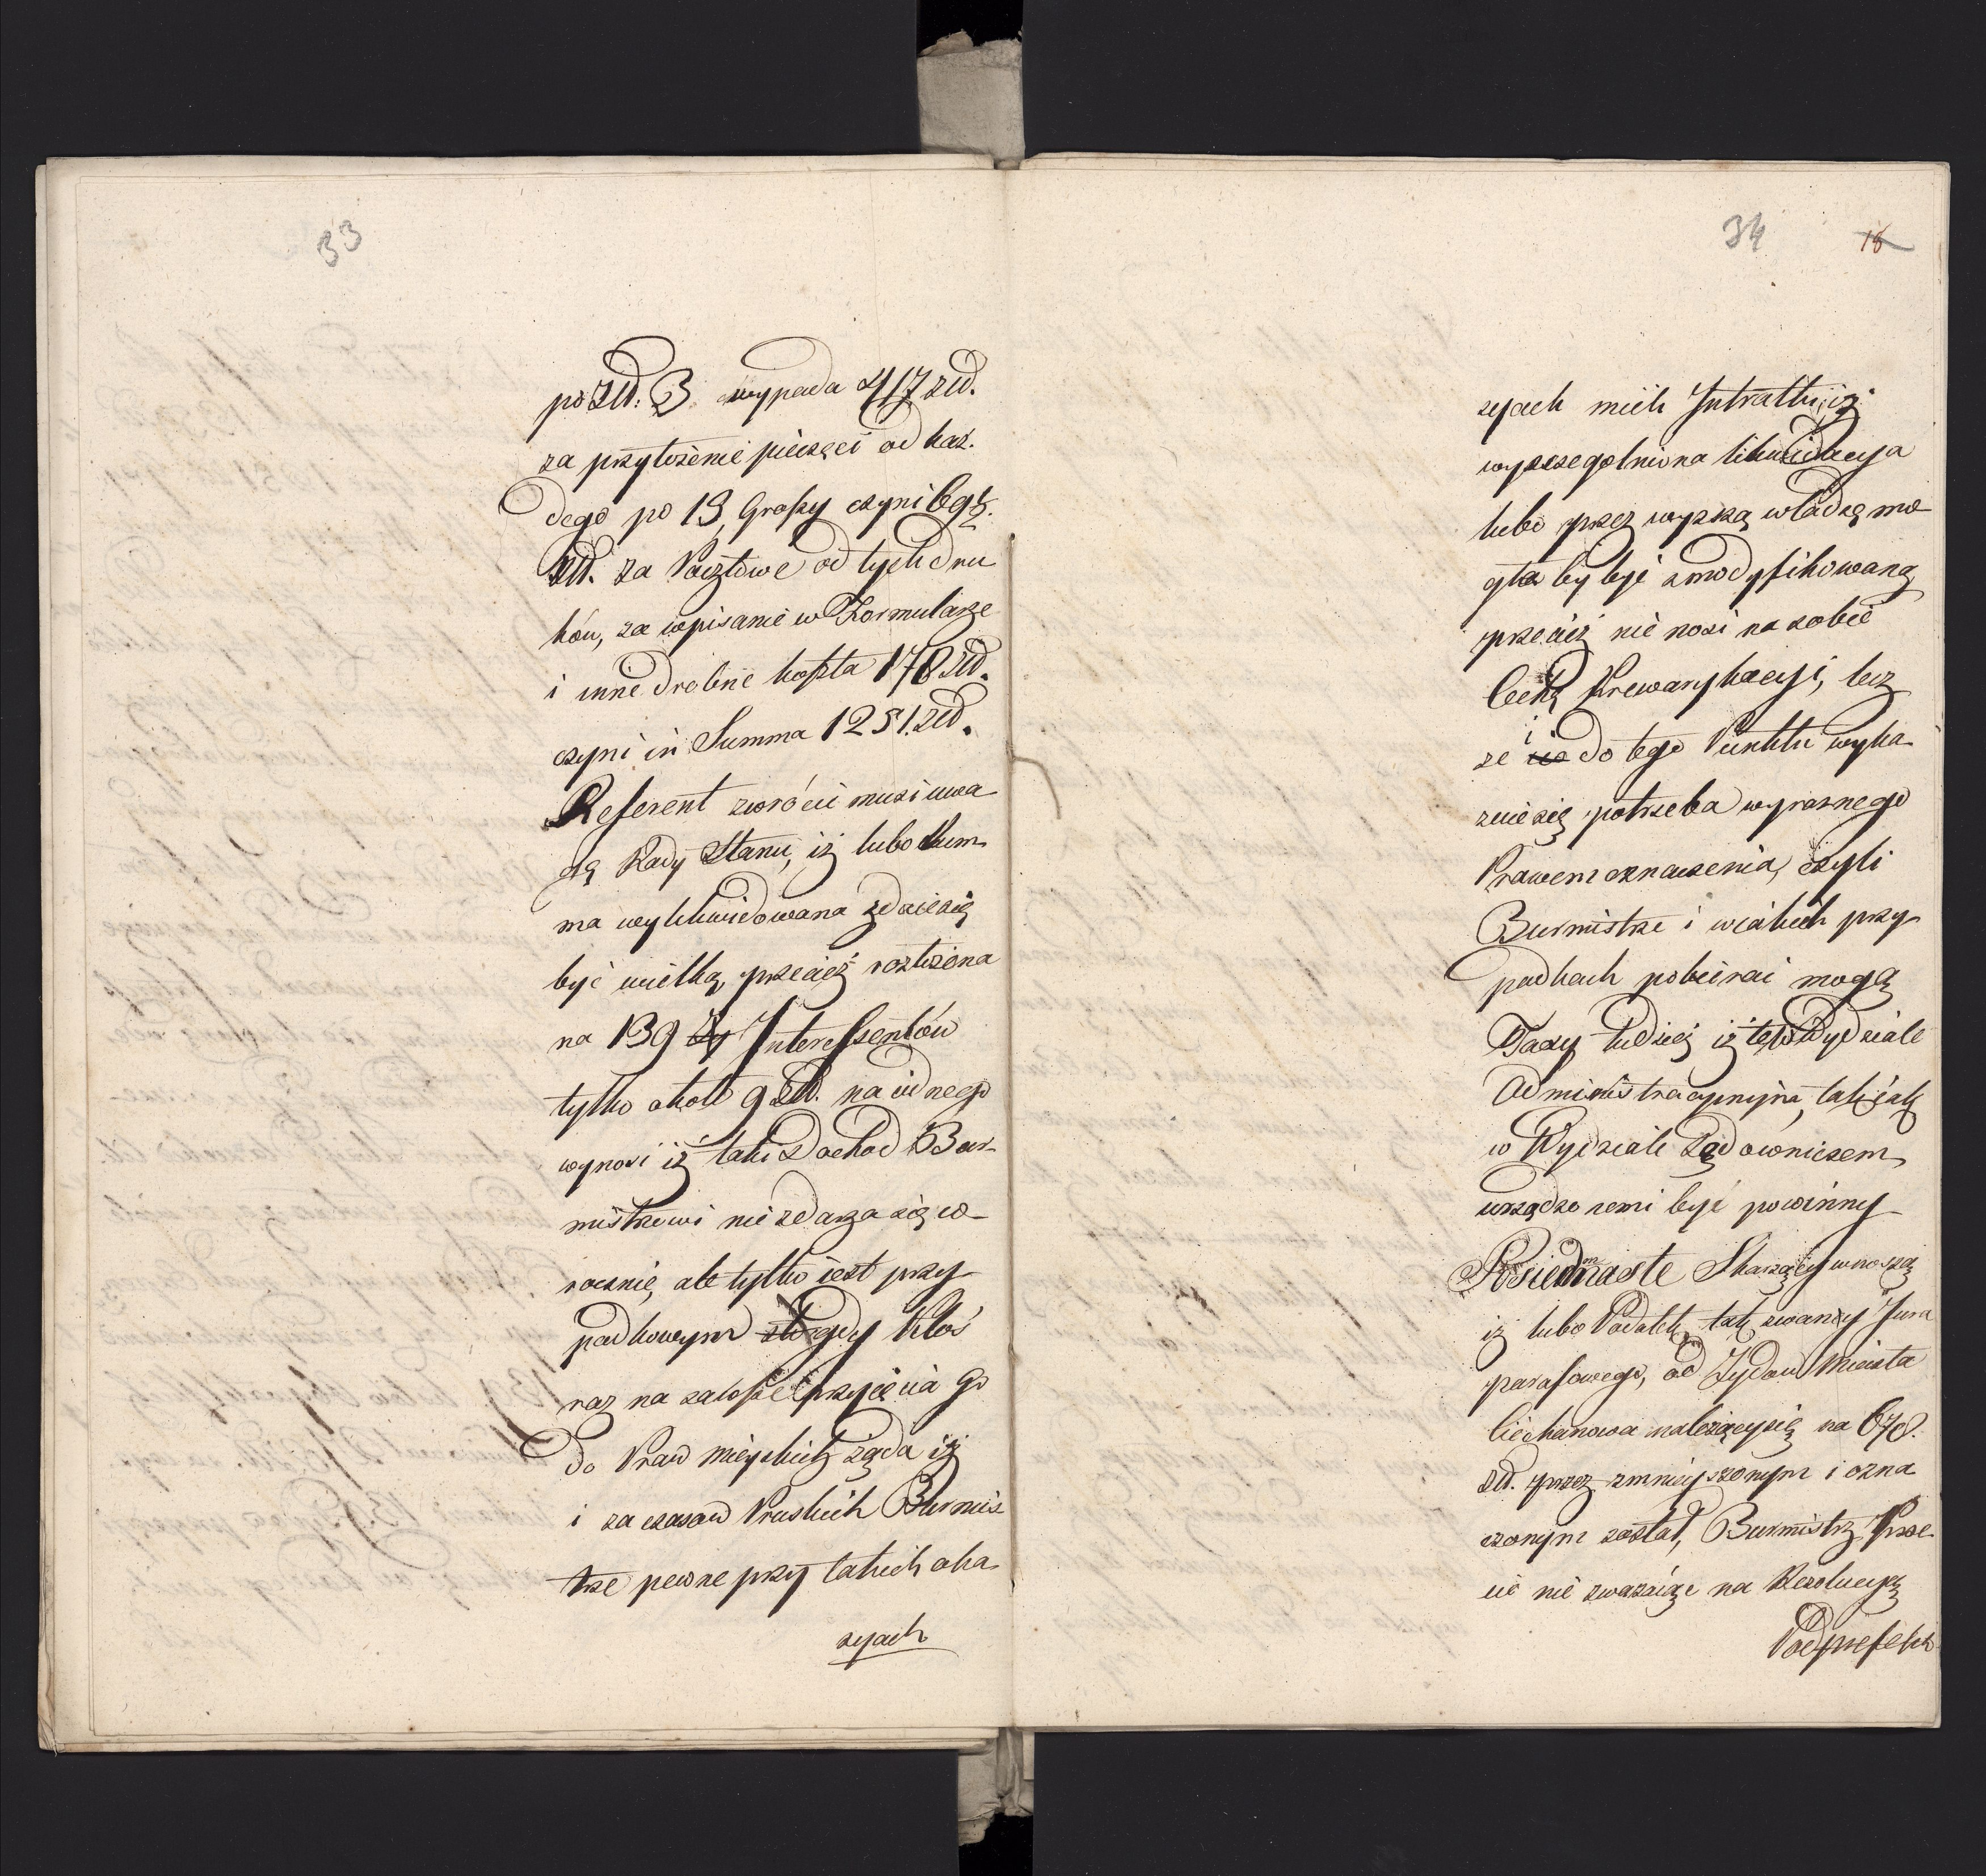 33
po Zld. 3 wypada 417 zld.
za przyłożenie pieczęci od każ-
dego po 13, Groszy czyni
Zld. za Pocztowe od tych dru
ków, za wpisanie w Formularze
i inne drobne koszta 178 Zld.
czyni in Summa 1251. zld.
Referent zwrócić musi uwa
gę Rady Stanu, iż lubo Sum
ma wylikwidowana zdaie się
być wielką, przecież rozłożona
na 139 Interessentów
tylko około 9 Zld. na iednego
wynosi iż taki Dochod Bur-
mistrzowi nie zdarza się co-
rocznie, ale tylko iest przy-
padkowym gdy ktoś
raz na zawsze przyięcia go
do Praw mieyskich żąda iż
i za czasów Pruskich Burmis
trze pewne przy takich oka
zyach
34
18
zyach mieli Intratki, iż
wyszczegolniona likwidacya
lubo przez wyższą władzę mo
gła by być zmodyfikowaną
przecież nie nosi na sobie
Cechę Krewarykacyi, lecz
że i do tego Punktu wyka
zuie się potrzeba wyraznego
Prawem oznaczenia, czyli
Burmistrze i w iakich przy-
padkach pobierać mogą
Taxy tudzież iż te w Wydziale
Administracyinym, tak iak
w Wydziale Sądowniczem
urządzonemi być powinny
Posiedmnaste Skarżący wnoszą
iż lubo Podatek tak zwany Jura
parafowego, od Żydow Miasta
Ciechanowa należący się na 678.
zld. przez zmnieyszonym i ozna
czonym został, Burmistrz Prze
cie nie zważaiąc na Rezolucyą
Podprefekt